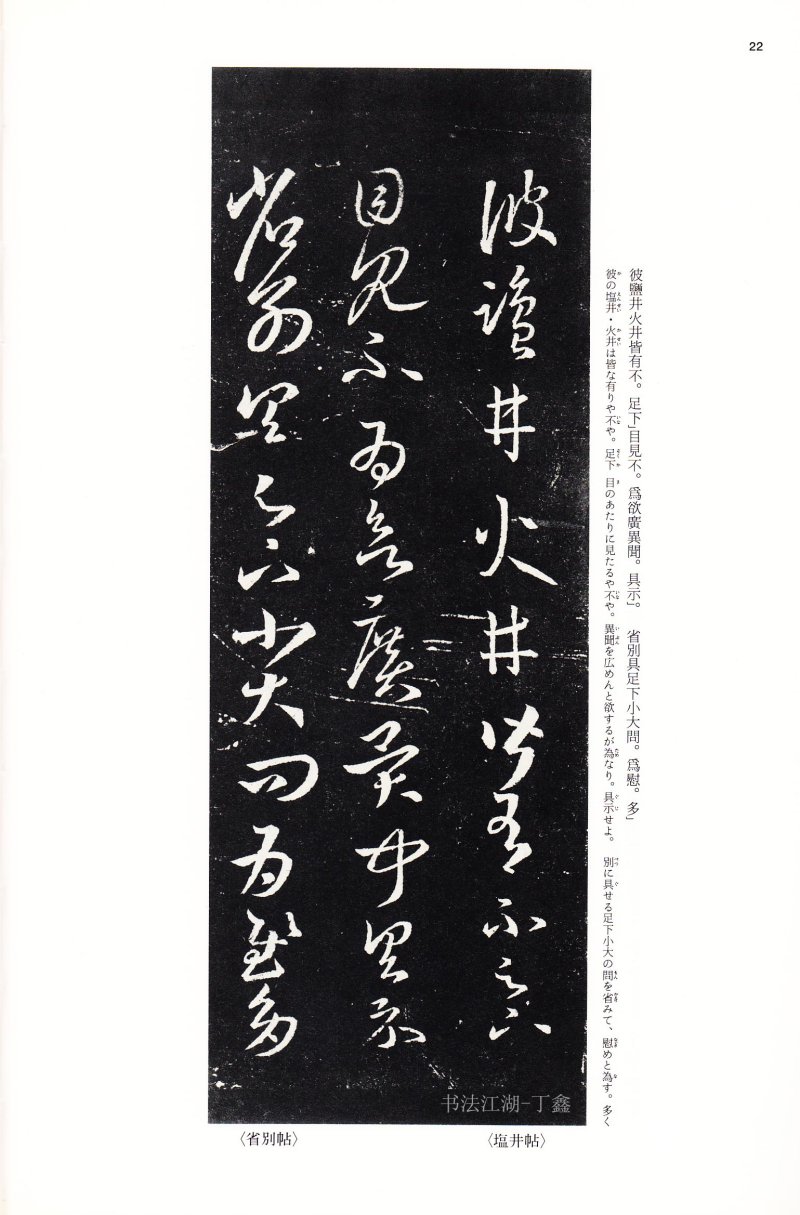 22
彼鹽井火井皆有不。足下」目見不。爲欲廣異聞。具示」　省別具足下小大問。爲慰。多」
彼の塩井・火井は皆な有りや不や。足下　目のあたりに見たるや不や。異聞を広めんと欲するが為なり。具示せよ。　別に具せる足下小大の問を省みて、慰めと為す。多く
彼鹽井火井皆有不足下
目見不爲欲廣異聞具示
省別具足下小大問爲慰多
书法江湖-丁鑫
〈塩井帖〉
〈省別帖〉